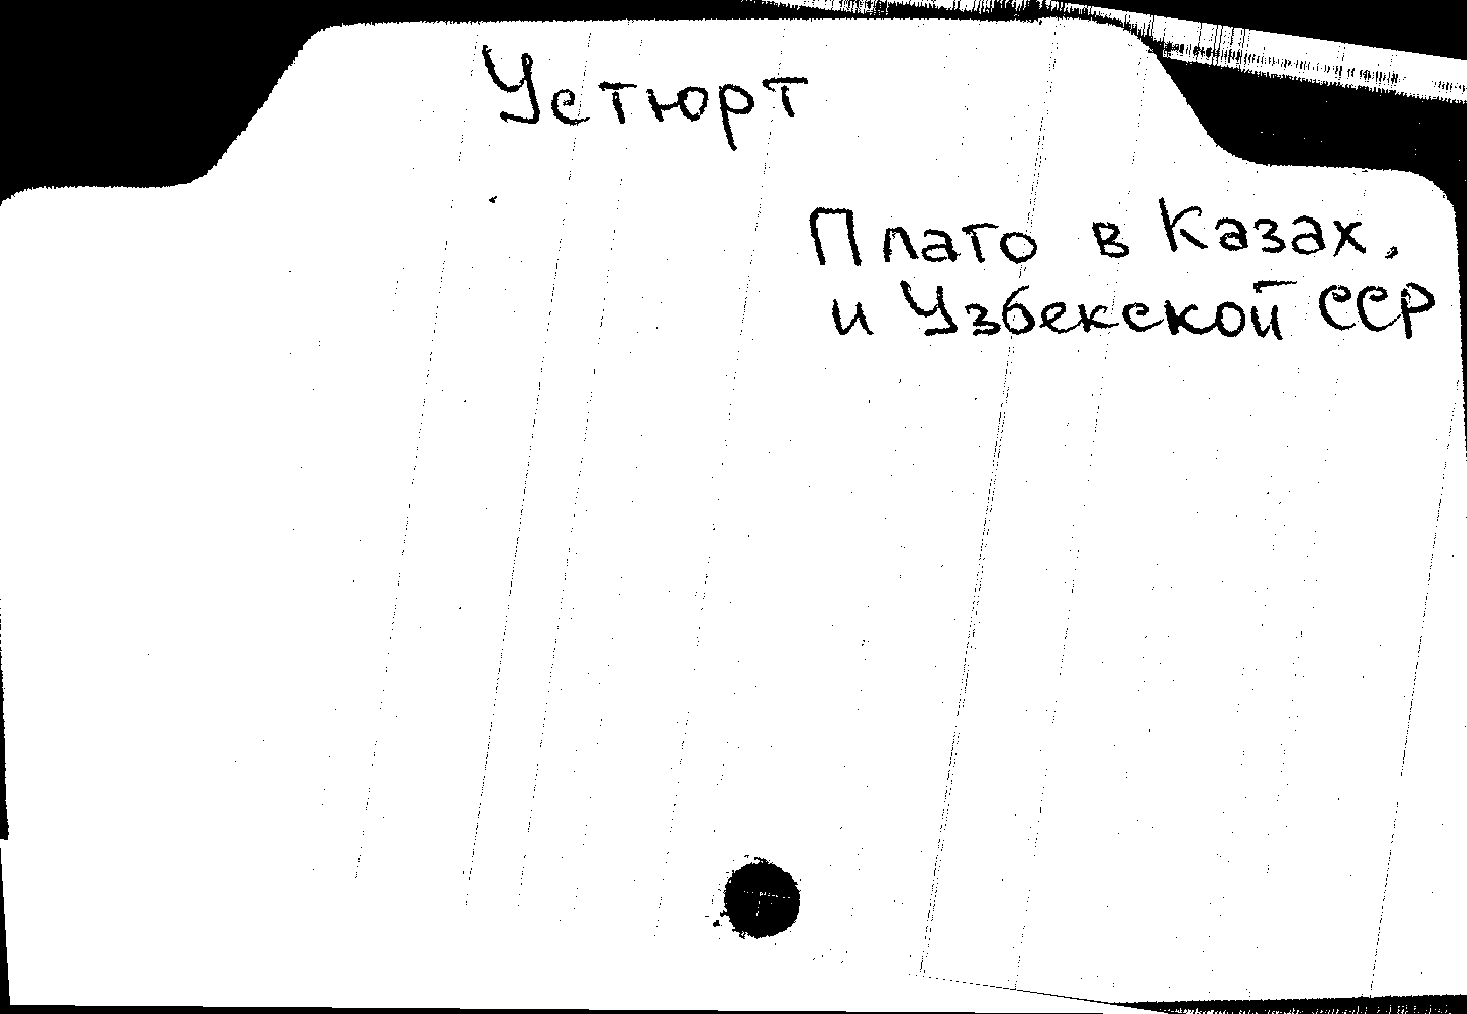 Устюрт
Плато в Казах.
и Узбекской ССР